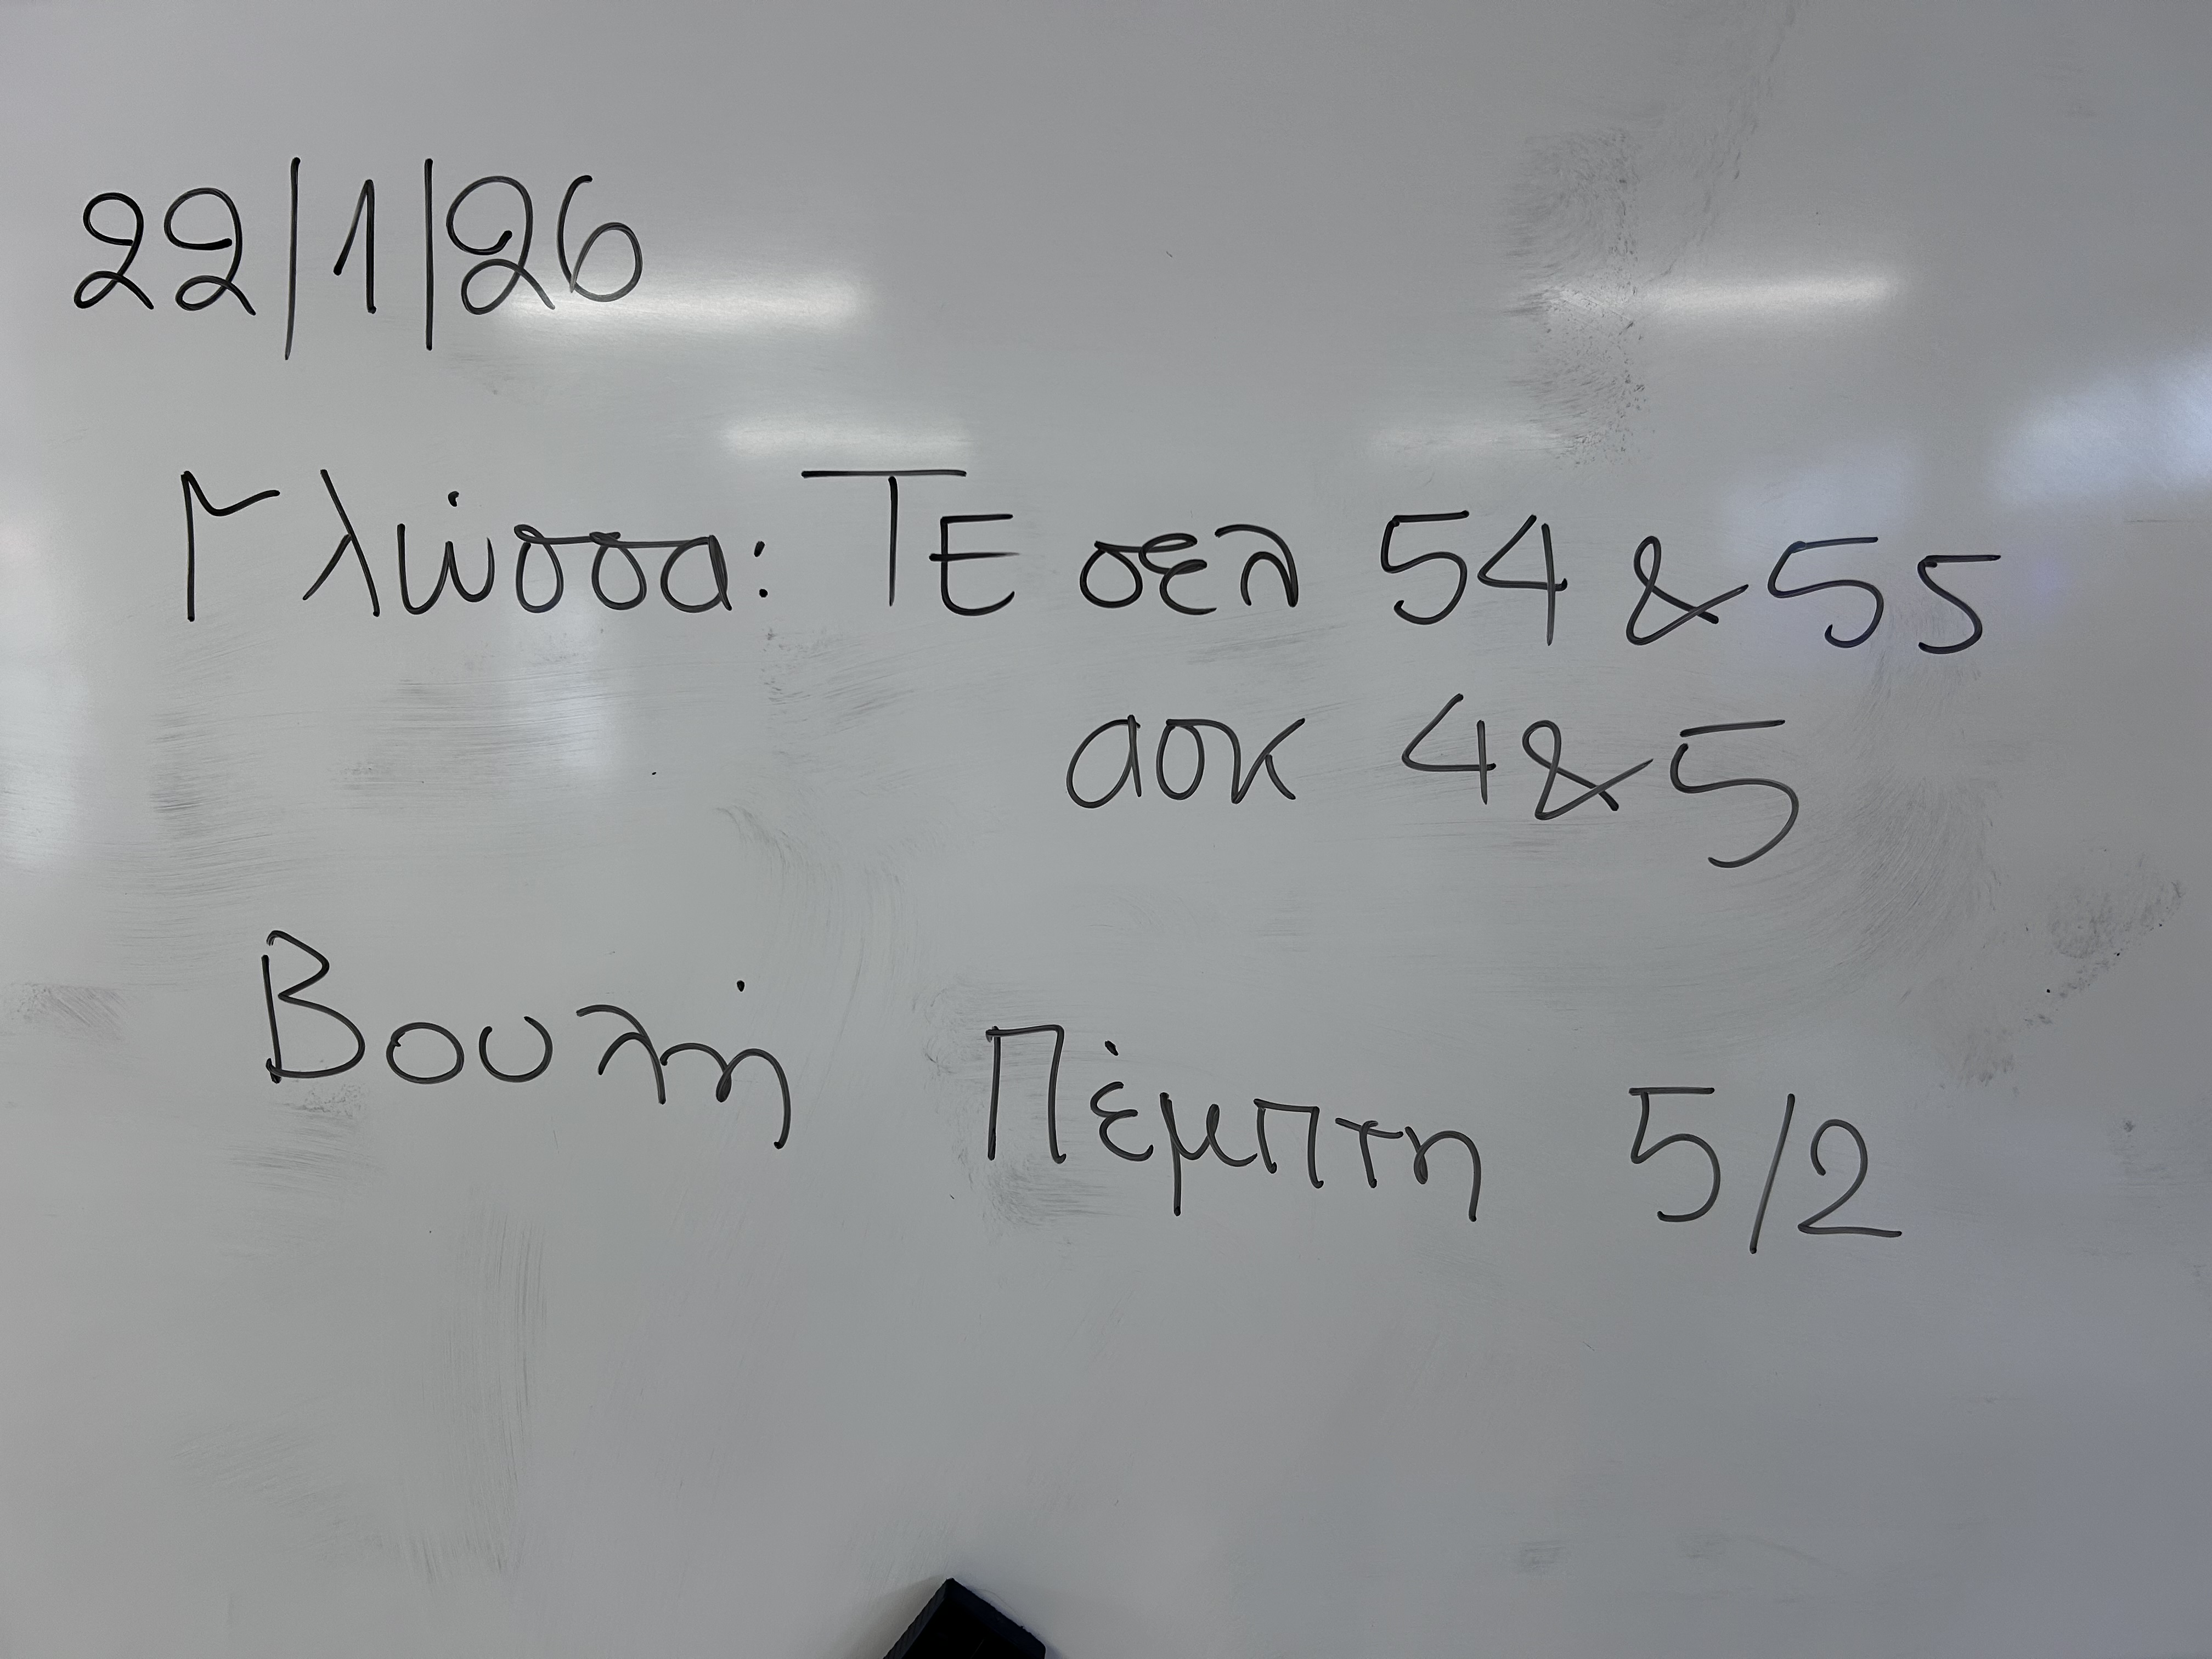 22/1/26
Γλώσσα: ΤΕ σελ 54 & 55
ασκ 4 & 5
Βουλή Πέμπτη 5/2